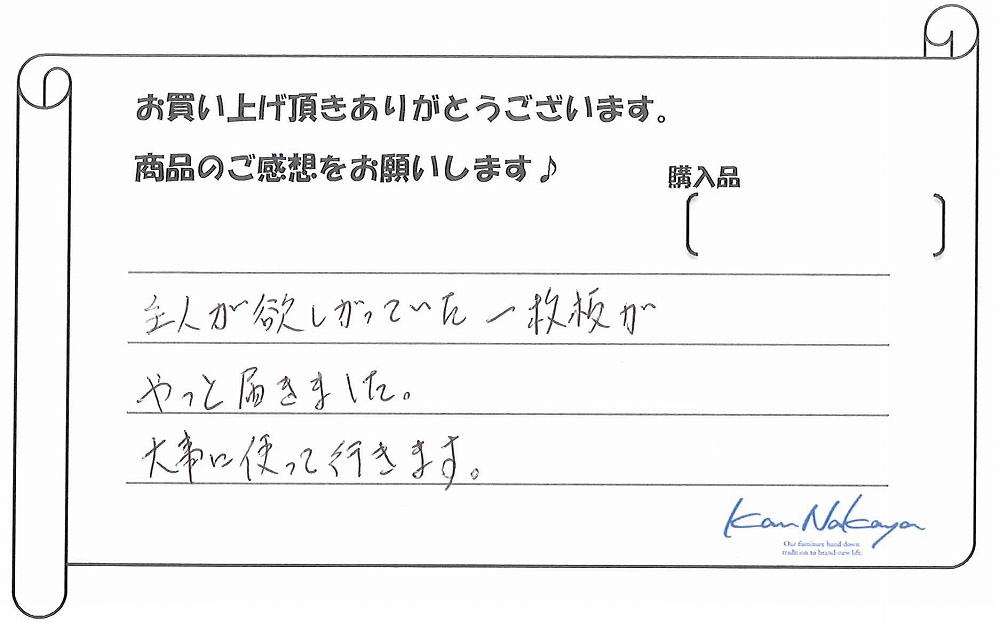 お買い上げ頂きありがとうございます。
商品のご感想をお願いします♪
購入品
主人が欲しがっていた一枚板が
やっと届きました。
大事に使って行きます。
Kan Nakaya
Our furniture hand down
tradition to brand-new life.